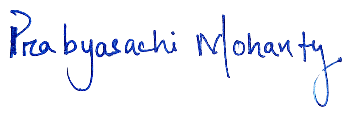 Prabyasachi Mohanty